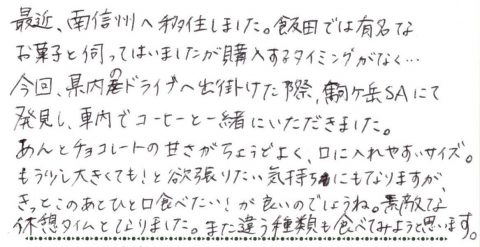 最近、南信州へ移住しました。飯田では有名な
お菓子と伺ってはいましたが購入するタイミングがなく…
今回、県内のドライブへ出掛けた際、駒ヶ岳SAにて
発見し、車内でコーヒーと一緒にいただきました。
あんとチョコレートの甘さがちょうどよく、口に入れやすいサイズ。
もう少し大きくても!と欲張りたい気持ちにもなりますが、
きっとこのあとひと口食べたい!が良いのでしょうね。素敵な
休憩タイムとなりました。また違う種類も食べてみようと思います。